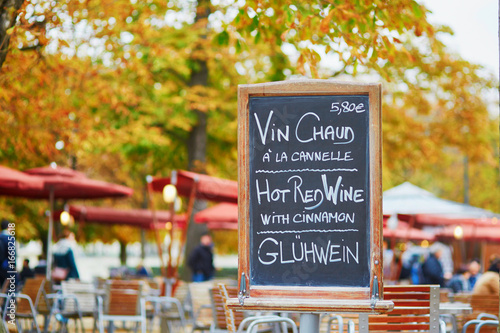 5,80€
VIN CHAUD
À LA CANNELLE
HOT RED WINE
WITH CINNAMON
GLÜHWEIN
168825618